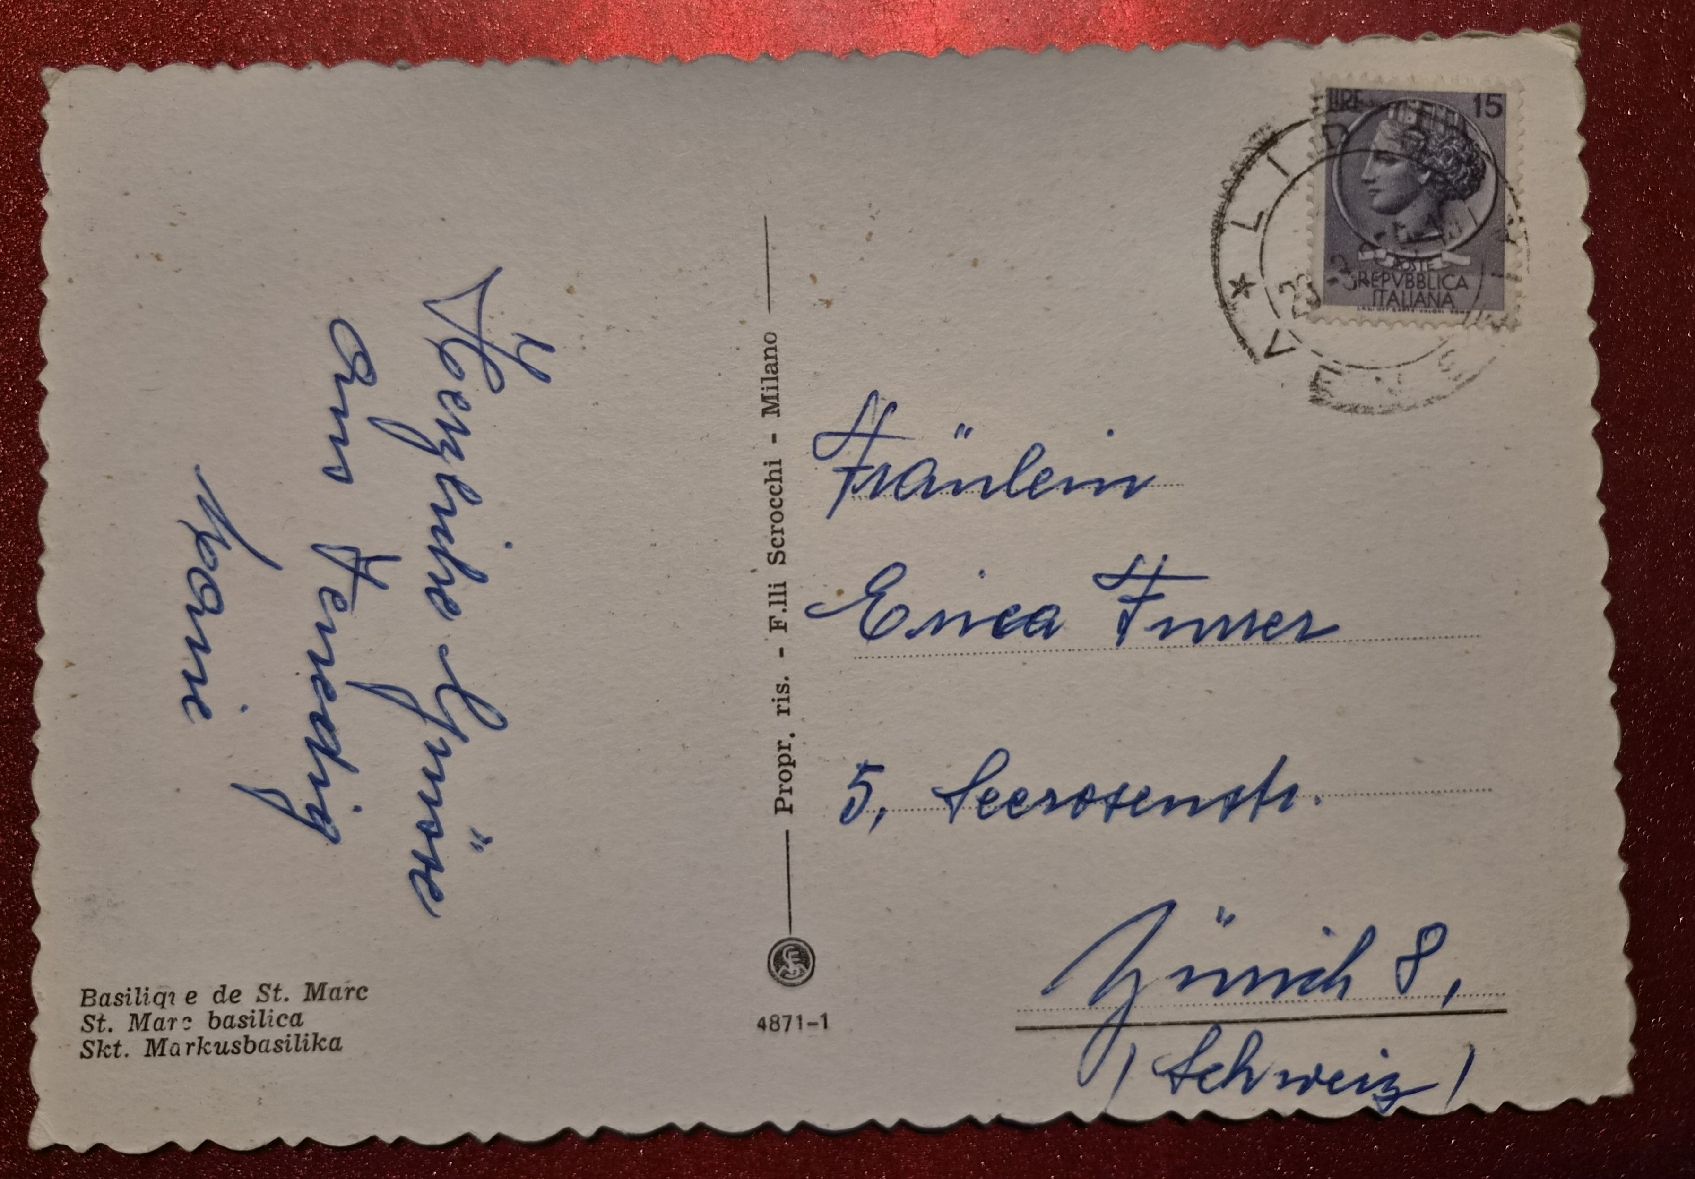 Herzliche Grüsse
aus Venedig
Marie
Basilique de St. Marc
St. Marc basilica
Skt. Markusbasilika
Propr. ris. - F.lli Scrocchi - Milano
4871-1
LIRE 15
POSTE
REPVBBLICA
ITALIANA
LIDO
Fräulein
Erica Furrer
5, Seerosenstr.
Zürich 8,
(Schweiz)